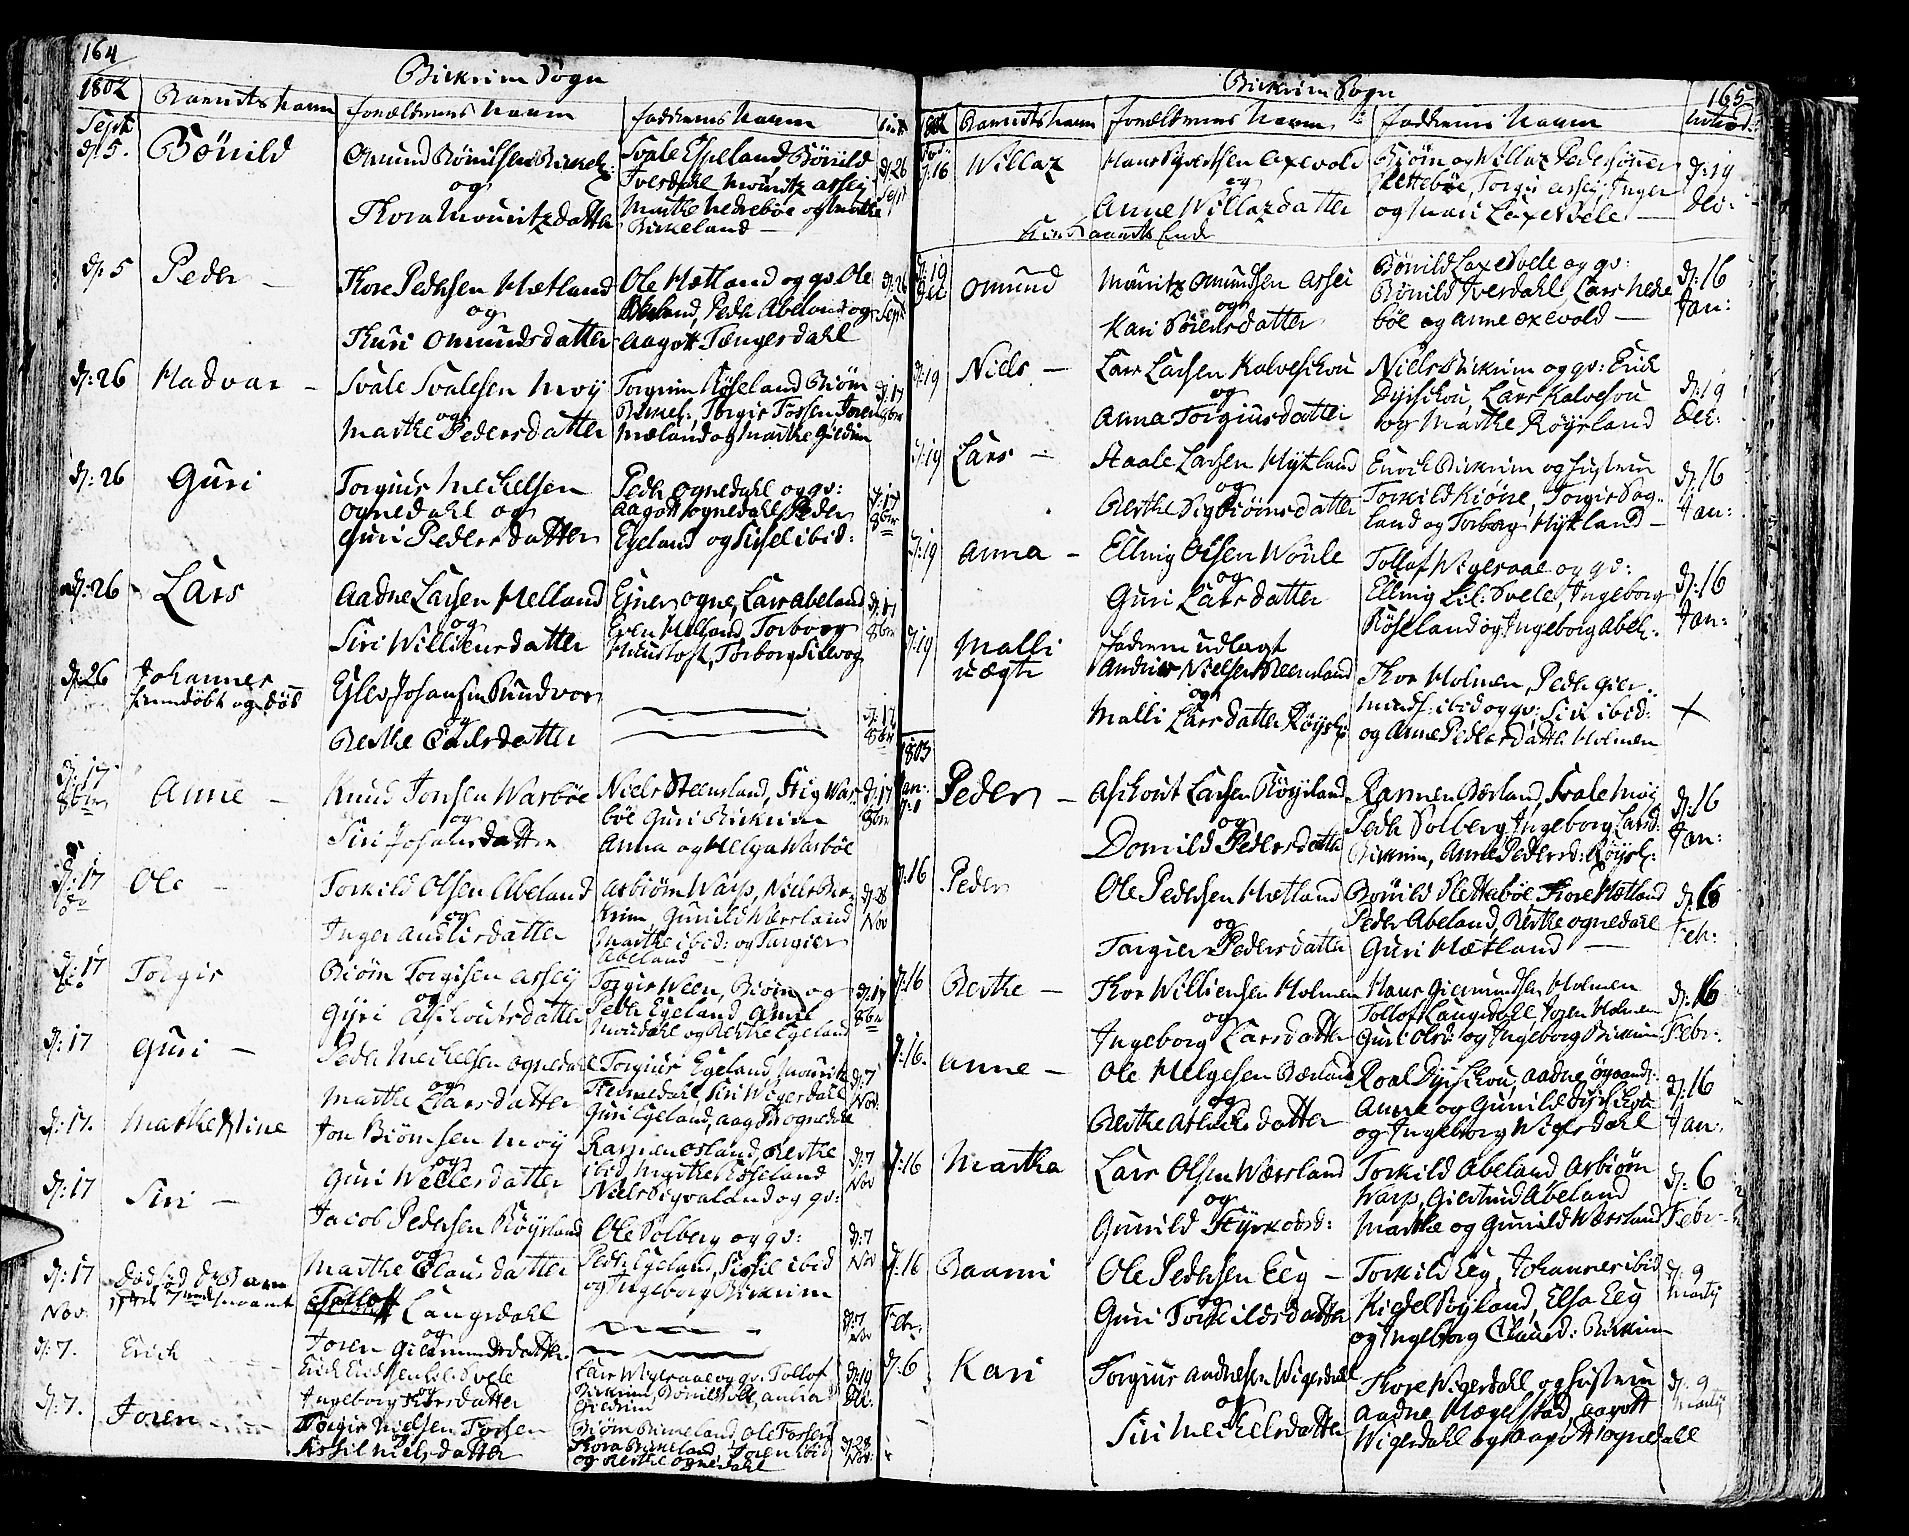 164
Birkrim Sogn
1802 Barnets Navn foræld­rens Navn faddernes Navn
Sept
d: 5. Bönild
Omund Bönildsen Birkel:
og
Thora Mouritzdatter
Svale Espeland, Bönild
Iversdahl, Mouritz Assei
Marthe Nedrebøe og Marthe
Birkeland
d: 26
Sept
d: 5 Peder
Thore Pedersen Hætland
og
Thuri Omundsdatter
Ole Hætland og qv: Ole
Peder Abeland og
Aagott Tengesdahl
d: 26
Sept
d: 26 Hadvar
Svale Svalesen Moy
og
Marthe Pedersdatter
Torgrim Røseland Biørn
Birkel: Torgir Fossen Joren
Mæland og Marthe Giedrim
d: 17
8br
d: 26 Guri
Torgiur Mechelsen
Ognedahl og
Guri Pedersdatter
Peder Ognedahl og qv:
Aagott Ognedahl, Peder
Egeland og Sissel ibid:
d: 17
8br
d: 26 Lars
Aadne Larsen Helland
og
Siri Williumsdatter
Ejner Ogne, Lars Abeland
Even Helland, Torborg
Torborg
d: 17
8br
d: 26 Johannes
hiemdøbt og død
Ejlev Johansen Sundvor
og
Berthe Carlsdatter
d: 17
8br
d: 17
8br Anne
Knud Jonsen Warbøe
og
Siri Johansdatter
Niels Steensland, Stig War
bøe Guri Birkrim
Anna og Helga Warbøe
d: 17
8br
d: 17
do Ole
Torkild Olsen Abeland
og
Inger Andersdatter
Asbiørn Warp, Niels Bir-
krim, Gunild Wersland
Marthe ibid: og Torgier
Abeland
d: 28
Nov
d: 17
do Torgir
Biørn Torgisen Assey
og
Gyri Aschoutsdatter
Torgir Ween, Biørn og
Peder Egeland
og Berthe Egeland
d: 17
8br
d: 17 Guri
Peder Mechelsen Ognedahl
og
Marthe Larsdatter
Torgiur Egeland, Mouritz
Siri Wigesdahl
Guri Egeland, Aagot Ognedahl
d: 7
Nov:
d: 17. Marthe Stine
Jon Biørnsen Moy
og
Guri Wellesdatter
Rasmen Osland, Berthe
ibid Marthe Røseland
Niels Sigvaland og qv:
d: 7
Nov
d: 17 Siri
Jacob Pedersen Röysland
og
Marthe Clausdatter
Ole Solberg og qv:
Peder Egeland, Sissil ibid
og Ingeborg Birkrim
d: 7
Nov
d: 17 Dødfød
Tollof Laugsdahl
og
Joren Giermundsdatter
d: 7
Nov
Nov:
d: 7. Erich
og
Ingeborg Thorsdatter
Lars Wigesaae og qv: Tollof
Birkrim, Anna
Giedrim
d: 19
Dec:
d: 7. Joren
Torgir Nielsen Fossen
og
Sissil Nielsdatter
Biørn Birkeland, Ole Fossen
Thora Birkeland, Joren ibid
og Berthe Ognedahl
d: 28
Nov:
165
Birkrim Sogn
1802 Barnets Navn forældrens Navn faddernes Navn introd:
d: 16 Willaz
Hans Sivertsen Oxevold
og
Anne Willazdatter
Biørn og Willaz Pedersønner
Slettebøe, Torgir Assey, Inger
og Mari Laxesvele
d: 19
Dec:
Kirke aarets Ende
d: 19
Dec Omund
Mouritz Omundsen Assei
og
Kari Sörensdatter
Bönild Laxesvele og qv:
Bönild Iversdahl, Lars Nedre
bøe og Anne Oxevold
d: 16
Jan:
d: 19 Niels
Lars Larsen Kalveskou
og
Anna Torgiursdatter
Niels Birkrim og qv: Erich
Dyrskou, Lars Kalvesou
og Marthe Röysland
d: 19
Dec:
d: 19 Lars
Staale Larsen Hytland
og
Berthe Sigbiörnsdatter
Enoch Birkrim og hustrue
Torkild Kiöne, Torgir Sag-
land og Torborg Hytland
d: 16
Jan:
d: 19 Anna
Elling Olsen Woule
og
Guri Larsdatter
Tollof Wigesaae og qv:
Elling Lil: Svele, Ingeborg
Röseland og Ingeborg Abel:
d: 16
Jan:
d: 19 Malli
uægte
fadren udlagt
Andrias Nielsen Steensland
og
Malli Larsdatter Röysl:
Thor Holmen, Peder Gier-
munds: ibid og qv: Siri ibid:
og Anne Pedersdatter Holmen
1803
Jan:
d: 1 Peder
Aschout Larsen Röysland
og
Domild Pedersdatter
Rasmen Børland, Svale Moi
Peder Solberg, Ingeborg Larsd:
Birkrim, Anne Pedersd: Röysl:
d: 16
Jan:
d: 16 Peder
Ole Pedersen Hætland
og
Torgier Pedersdatter
Bönild Slettebøe, Thore Hætland
Peder Abeland, Berthe Ognedahl
Guri Hætland
d: 6
Feb:
d: 16 Berthe
Thor Williensen Holmen
og
Ingeborg Larsdatter
Hans Giermundsen Holmen
Tollof Laugsdahl Joren Holmen
Guri Olsd: og Ingeborg Birkrim
d: 16
Febr:
d: 16. Anne
Ole Helgesen Børland
og
Berthe Atlachsdatter
Roal Dyrskou, Aadne
Anne og Gunild Dyrskou
og Ingeborg Wigesdahl
d: 16
Jan:
d: 16 Martha
Lars Olsen Wærsland
og
Gunild Styrkorsd:
Torkild Abeland Asbiørn
Warp, Giertrud Abeland
Marthe og Gunild Wærsland
d: 6
Febr
d: 16 Baarni
Ole Pedersen Eeg
og
Guri Torkildsdatter
Torkild Eeg, Johannes ibid
Kiedel Röyland, Elsa Eeg
og Ingeborg Clausd: Birkrim
d: 9
Martij
Febr:
d: 6 Kari
Torgiur Aadnesen Wigesdahl
og
Siri Mechelsdatter
Thore Wigesdahl og hustrue
Aadne Hægelstad, Aagott
Wigesdahl og Aagott Ognedahl
d: 9
Martij